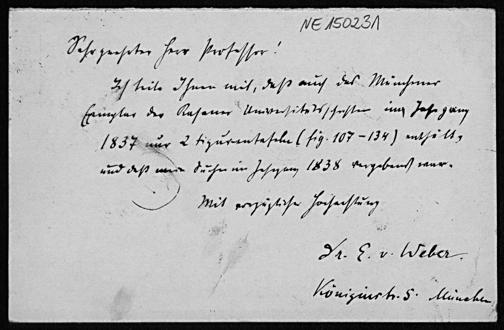 NE150231
Sehr geehrter Herr Professor!
Ich teile Ihnen mit, daß auch das Münchner
Exemplar der Kasaner Universitätsschriften im Jahrgang
1837 nur 2 Figurentafeln (fig. 107–134) enthält,
und daß mein Suchen im Jahrgang 1838 vergebens war.
Mit vorzüglicher Hochachtung
Dr. E. v. Weber.
Königinstr. 5. München